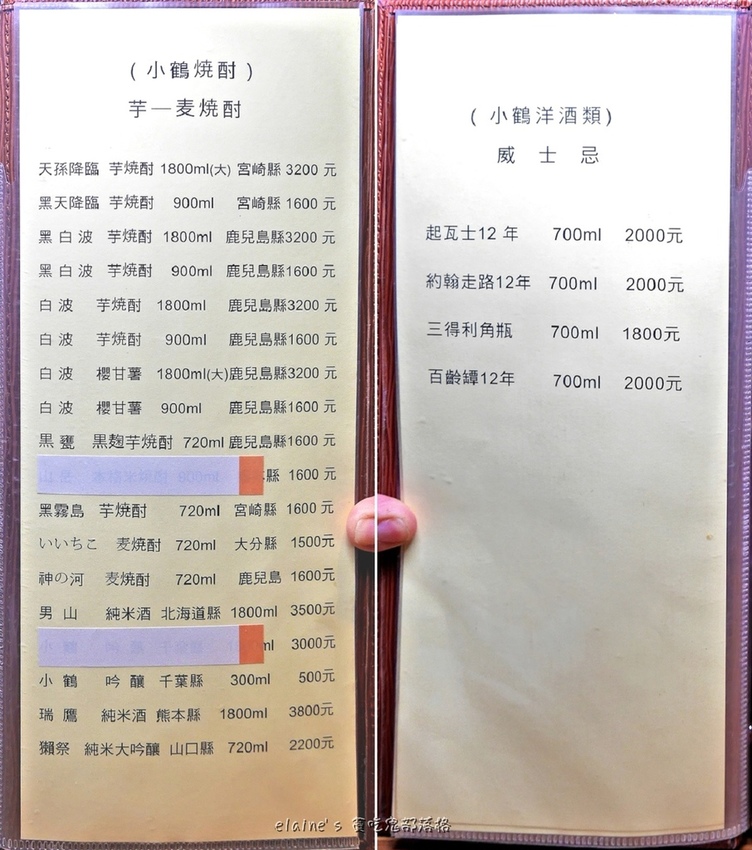 （小鶴焼酎）
芋—麦焼酎
天孫降臨 芋焼酎 1800ml(大) 宮崎縣 3200 元
黑天降臨 芋焼酎 900ml 宮崎縣 1600 元
黑白波 芋焼酎 1800ml 鹿兒島縣3200 元
黑白波 芋焼酎 900ml 鹿兒島縣1600 元
白波 芋焼酎 1800ml 鹿兒島縣3200元
白波 芋焼酎 900ml 鹿兒島縣1600元
白波 櫻甘薯 1800ml(大)鹿兒島縣3200元
白波 櫻甘薯 900ml 鹿兒島縣1600 元
黑甕 黒麹芋焼酎 720ml 鹿兒島縣1600 元
縣 1600 元
黑霧島 芋焼酎 720ml 宮崎縣 1600 元
いいちこ 麦焼酎 720ml 大分縣 1500元
神の河 麦焼酎 720ml 鹿兒島 1600元
男山 純米酒 北海道縣 1800ml 3500元
小鶴 千葉縣 ml 3000元
小鶴 吟釀 千葉縣 300ml 500元
瑞鷹 純米酒 熊本縣 1800ml 3800元
獺祭 純米大吟釀 山口縣 720ml 2200元
（小鶴洋酒類）
威士忌
起瓦士12 年 700ml 2000元
約翰走路12年 700ml 2000元
三得利角瓶 700ml 1800元
百齡罈12年 700ml 2000元
elaine's 貪吃鬼部落格